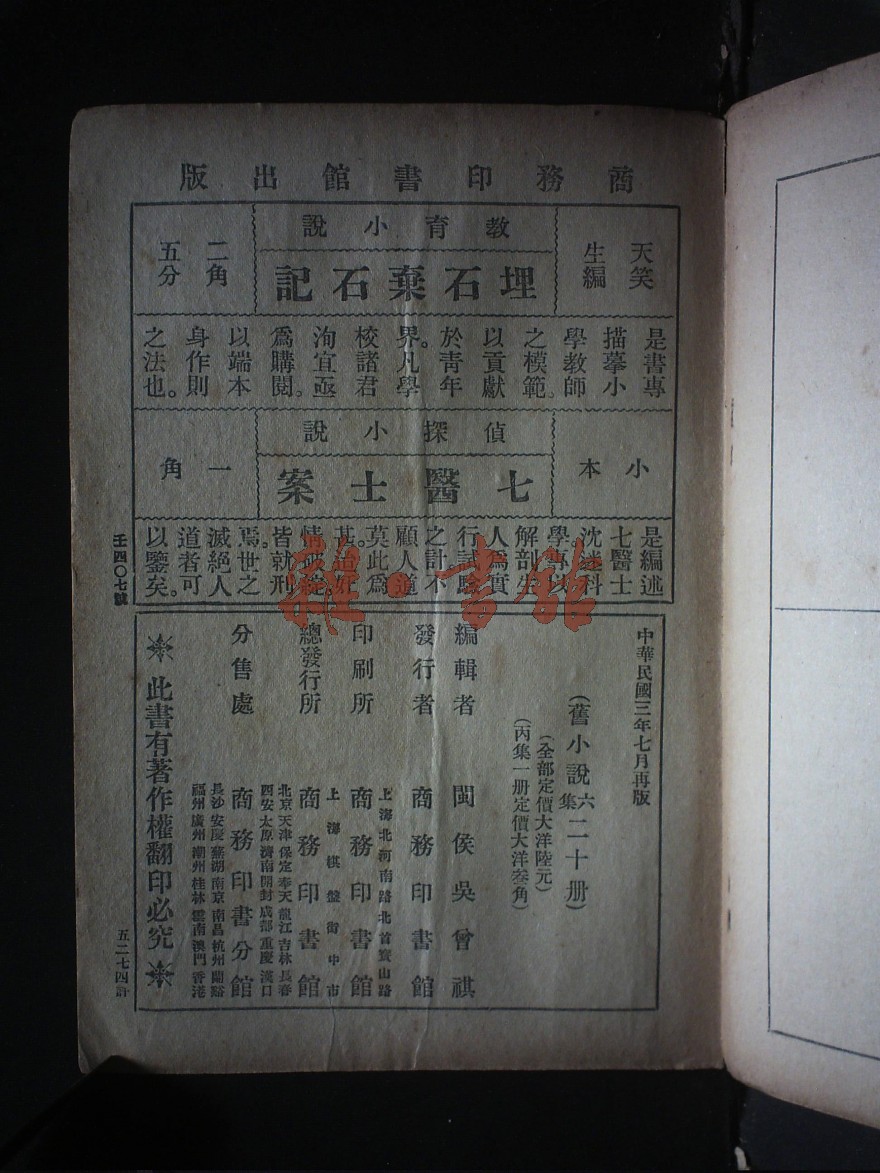 商務印書館出版
天笑
生編
教育小說
埋石棄石記
二角
五分
是書專
描摹小
學教師
之模範。
以貢獻
於青年
界。凡學
校諸君
洵宜亟
爲購閱。
以端本
身作則
之法也。
小本
偵探小說
七醫士案
一角
是編述
七醫士
沈迷科
學。專以
解剖生
人爲實
行試驗
之計。不
顧人道
莫此爲
甚。迨奸
情破綻。
皆就刑
焉。世之
滅絕人
道者可
以鑒矣。
壬四〇七號
雜·書館
中華民國三年七月再版
(舊小說六集二十册)
(全部定價大洋陸元)
(丙集一册定價大洋叁角)
編輯者 閩侯吳曾祺
發行者 商務印書館
上海北河南路北首寶山路
印刷所 商務印書館
上海棋盤街中市
總發行所 商務印書館
北京天津保定奉天龍江吉林長春
西安太原濟南開封成都重慶漢口
分售處 商務印書分館
長沙安慶蕪湖南京南昌杭州蘭谿
福州廣州潮州桂林雲南澳門香港
此書有著作權翻印必究
五二七四許